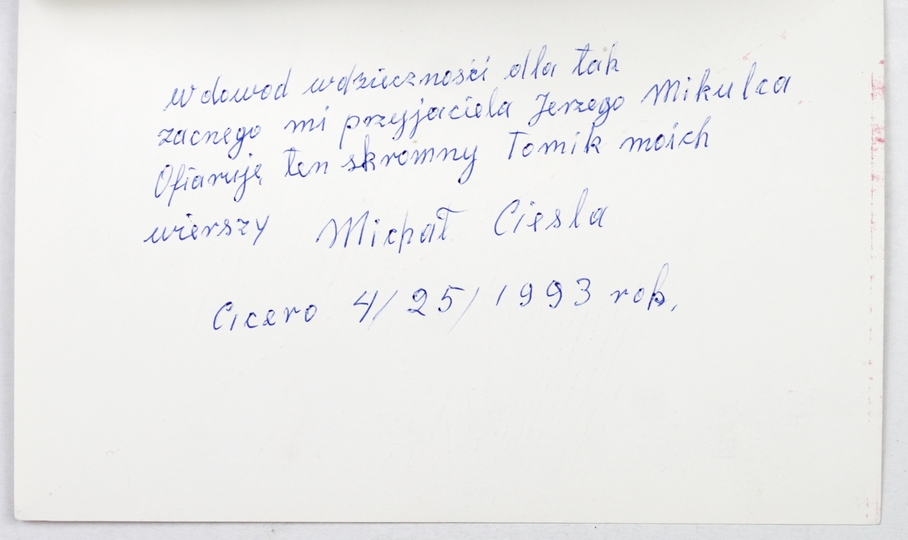 W dowod wdzieczności dla tak
zacnego mi przyjaciela Jerzego Mikulca
Ofiaruję ten skromny Tomik moich
wierszy Michał Ciesla
Cicero 4/25/1993 rok.